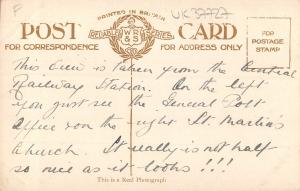 F
UK37727
PRINTED IN BRITAIN
POST CARD
RELIABLE WR & S SERIES
FOR CORRESPONDENCE FOR ADDRESS ONLY
FOR
POSTAGE
STAMP
This view is taken from the Central
Railway Station. On the left
you just see the General Post
Office on the right St. Martin's
Church. It really is not half
so nice as it looks!!!
This is a Real Photograph